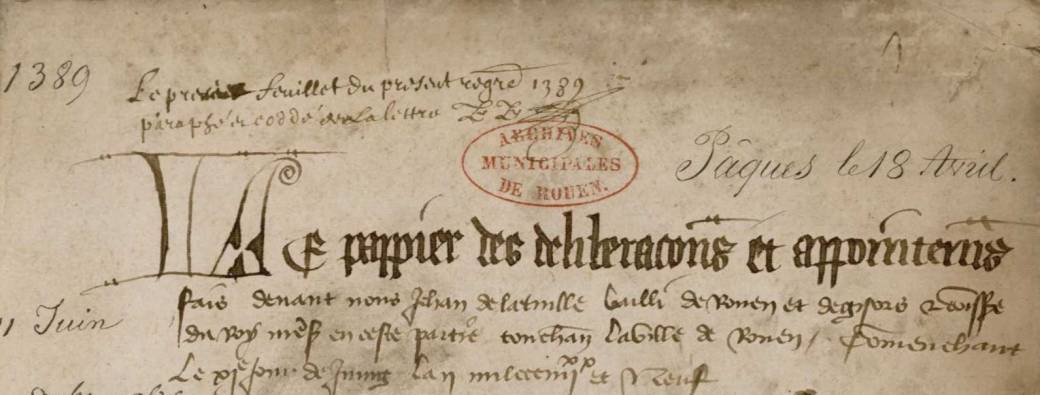 1389
Le premier feuillet du present regre 1389
paraphé et codé de la lettre B B
ARCHIVES
MUNICIPALES
DE ROUEN.
Pâques le 18 Avril.
Le pappier des deliberacons et appointemens
fais devant nous Jehan de la tuille bailli de Rouen et de gisors
du Roy en ceste partie touchant la ville de Rouen / Comenchant
Juin
Le xie jour de Juing lan mil ccc iiiixx et Neuf